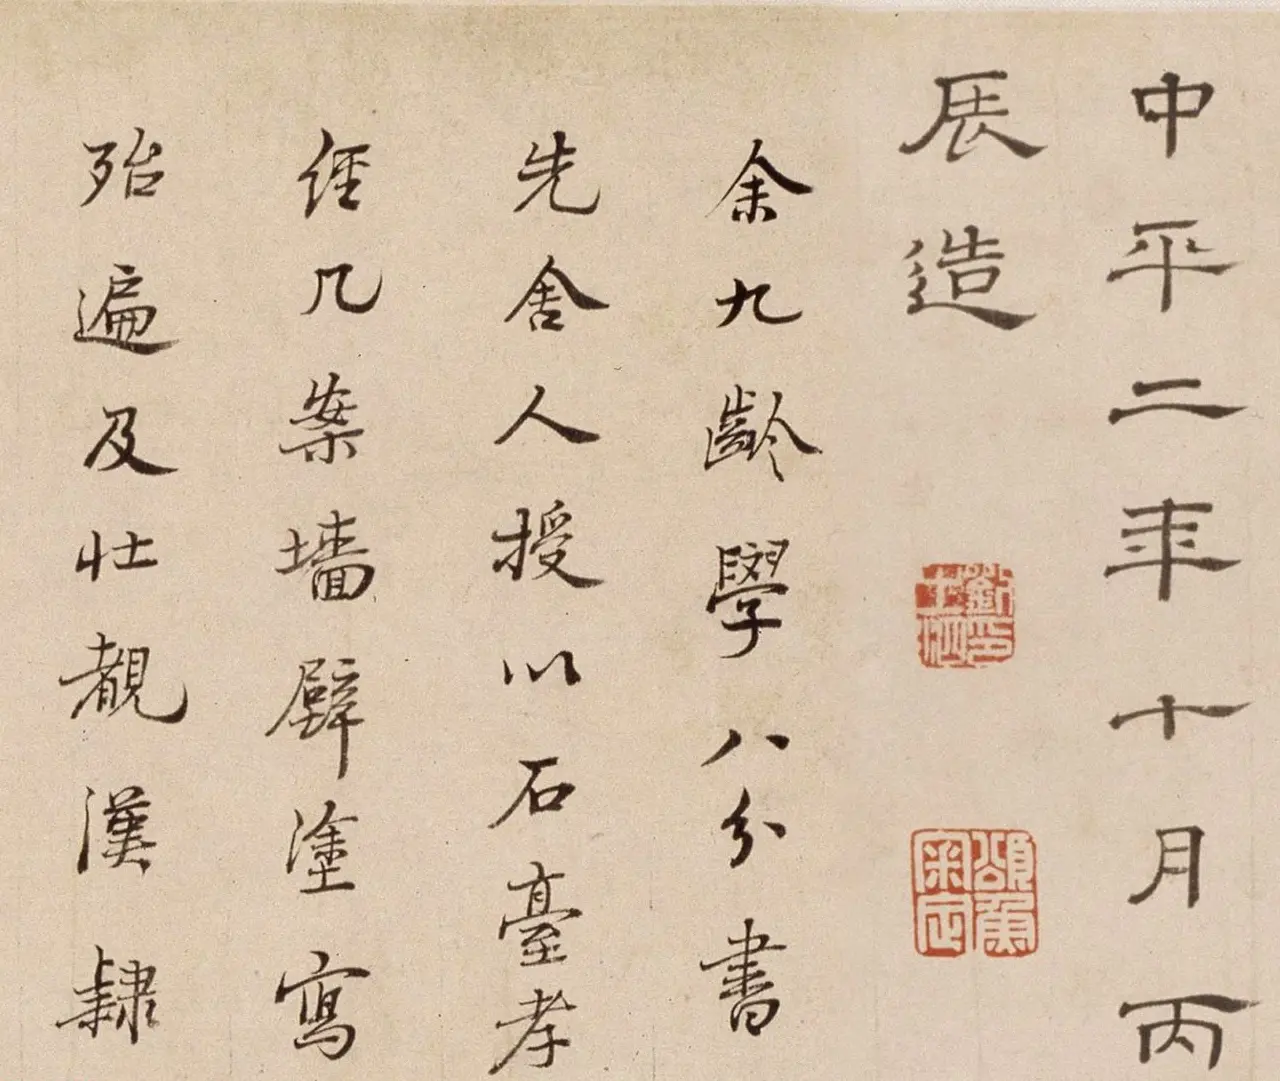 中平二年十月丙
辰造
余九齡學八分書
先舍人授以石臺孝
經几案墙壁塗寫
殆遍及壮覩漢隸